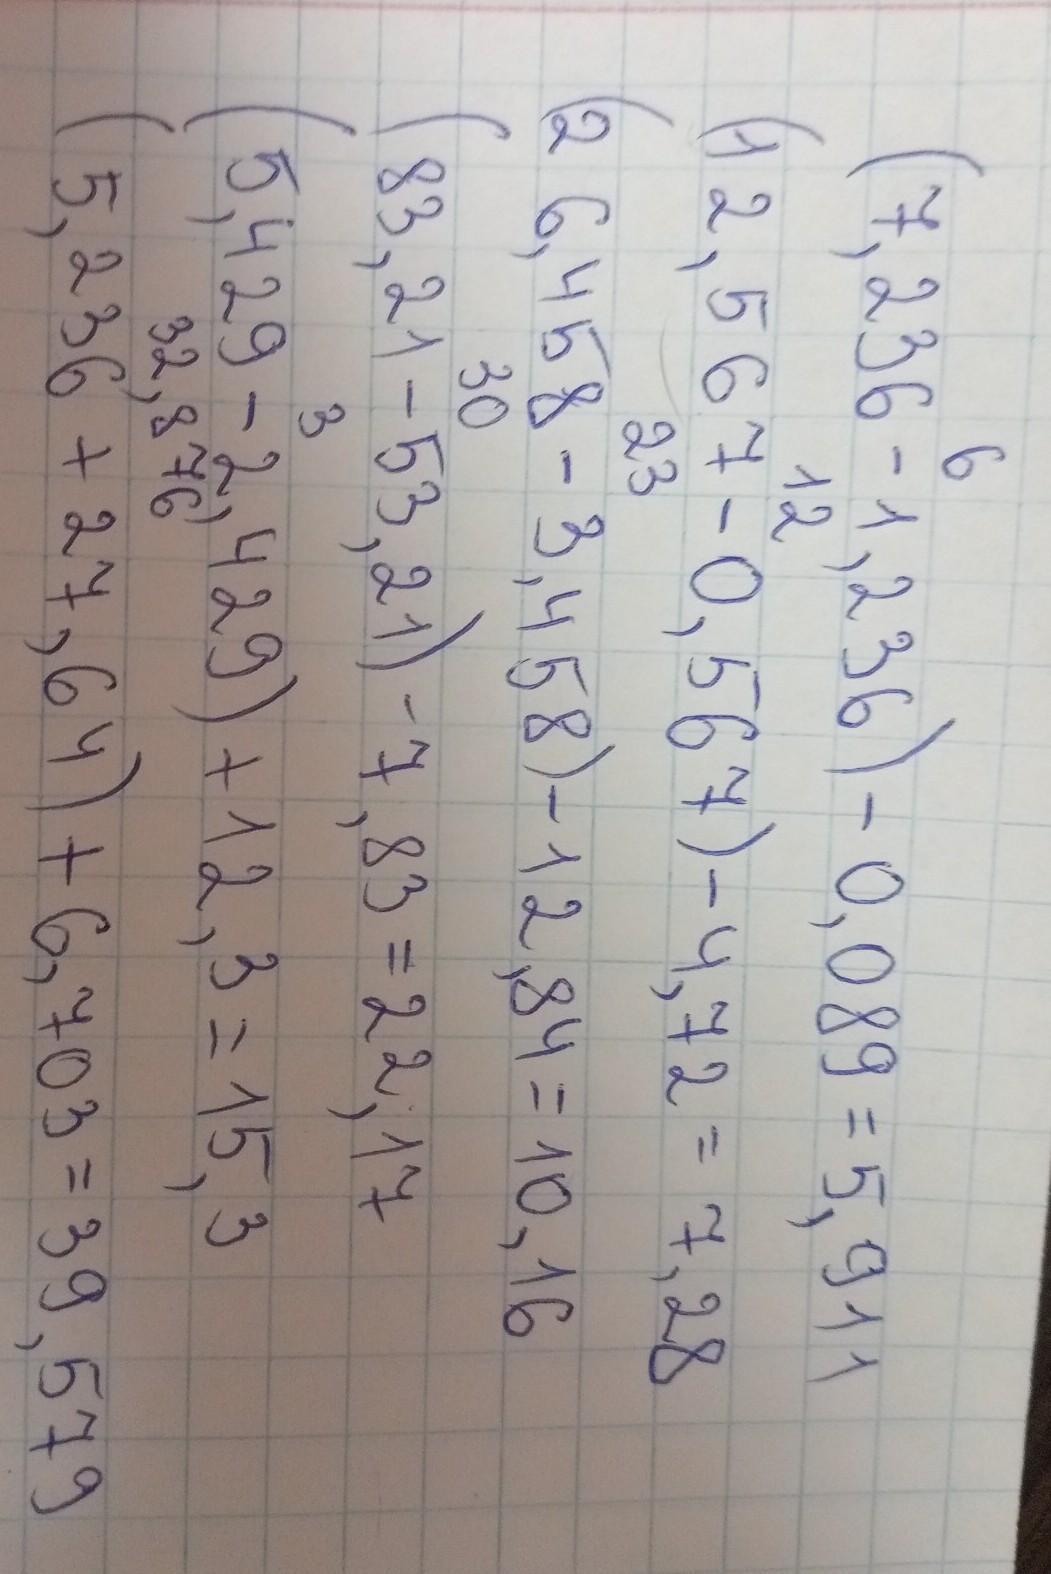 6
(7,236-1,236)-0,089=5,911
12
(12,567-0,567)-4,72=7,28
23
(26,458-3,458)-12,84=10,16
30
(83,21-53,21)-7,83=22,17
3
(5,429-2,429)+12,3=15,3
32,876
(5,236+27,64)+6,703=39,579